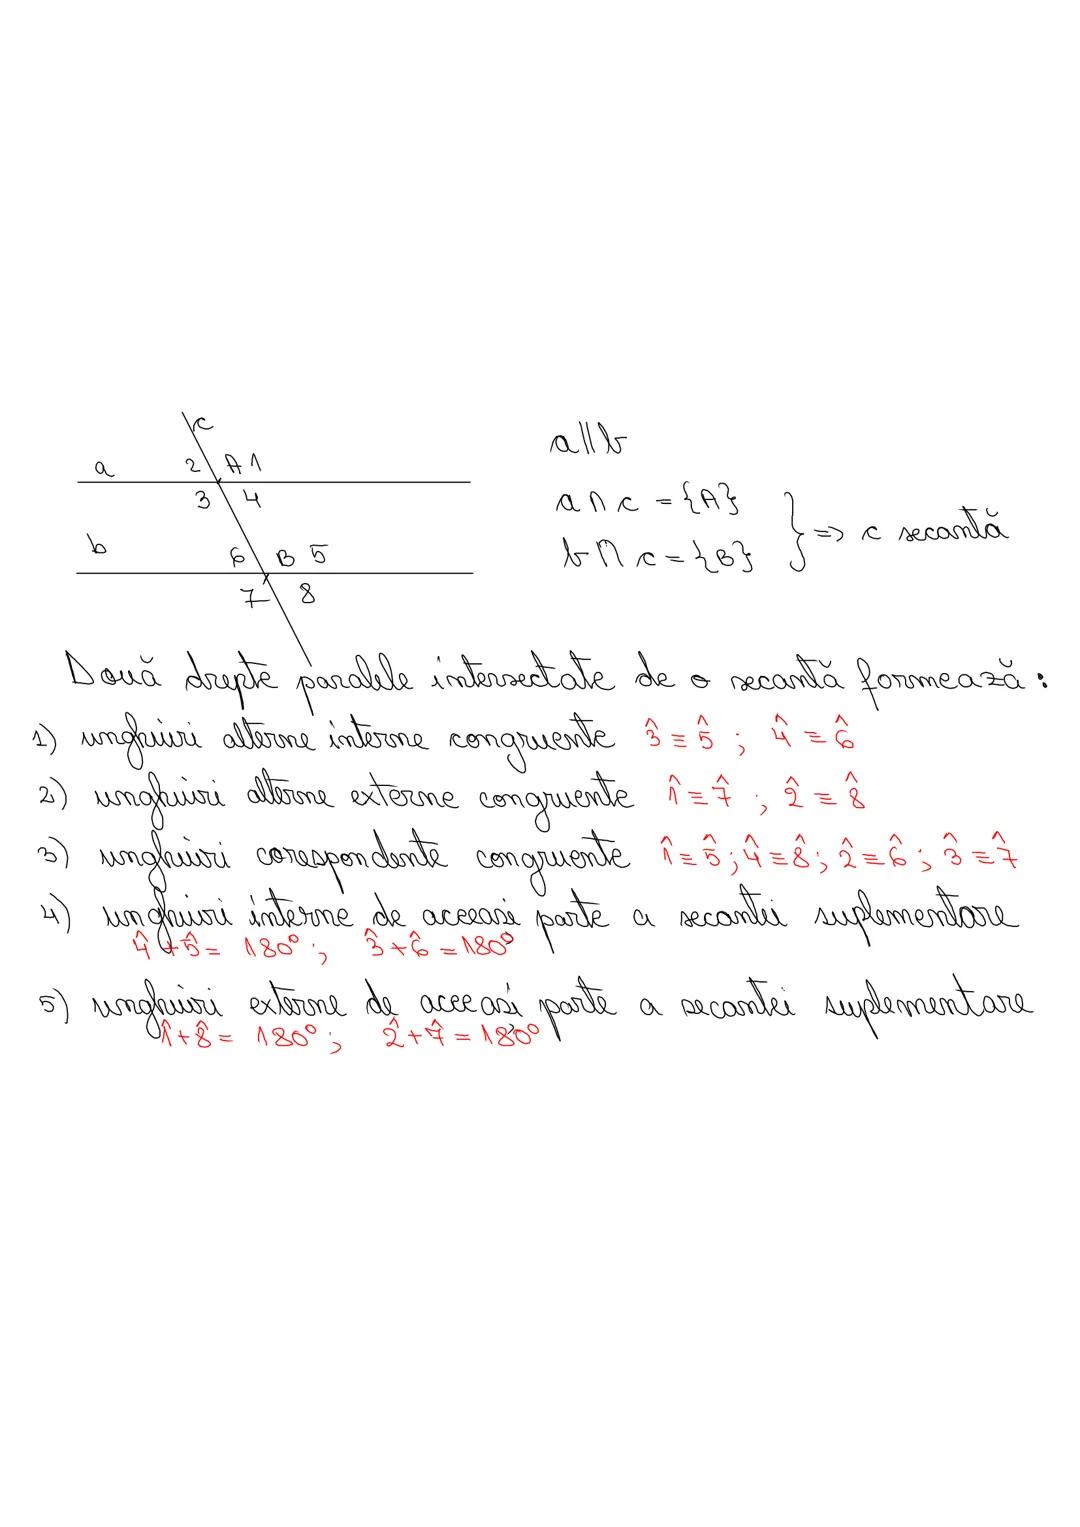 c
a 2 A 1
3 4
b 6 B 5
7 8
a∥b
a∩c = {A}
b∩c = {B} } => c secantă
Două drepte paralele intersectate de o secantă formează:
1) unghiuri alterne interne congruente 3̂ ≡ 5̂ ; 4̂ ≡ 6̂
2) unghiuri alterne externe congruente 1̂ ≡ 7̂ ; 2̂ ≡ 8̂
3) unghiuri corespondente congruente 1̂ ≡ 5̂ ; 4̂ ≡ 8̂ ; 2̂ ≡ 6̂ ; 3̂ ≡ 7̂
4) unghiuri interne de aceeași parte a secantei suplementare
4̂ + 5̂ = 180° ; 3̂ + 6̂ = 180°
5) unghiuri externe de aceeași parte a secantei suplementare
1̂ + 8̂ = 180° ; 2̂ + 7̂ = 180°